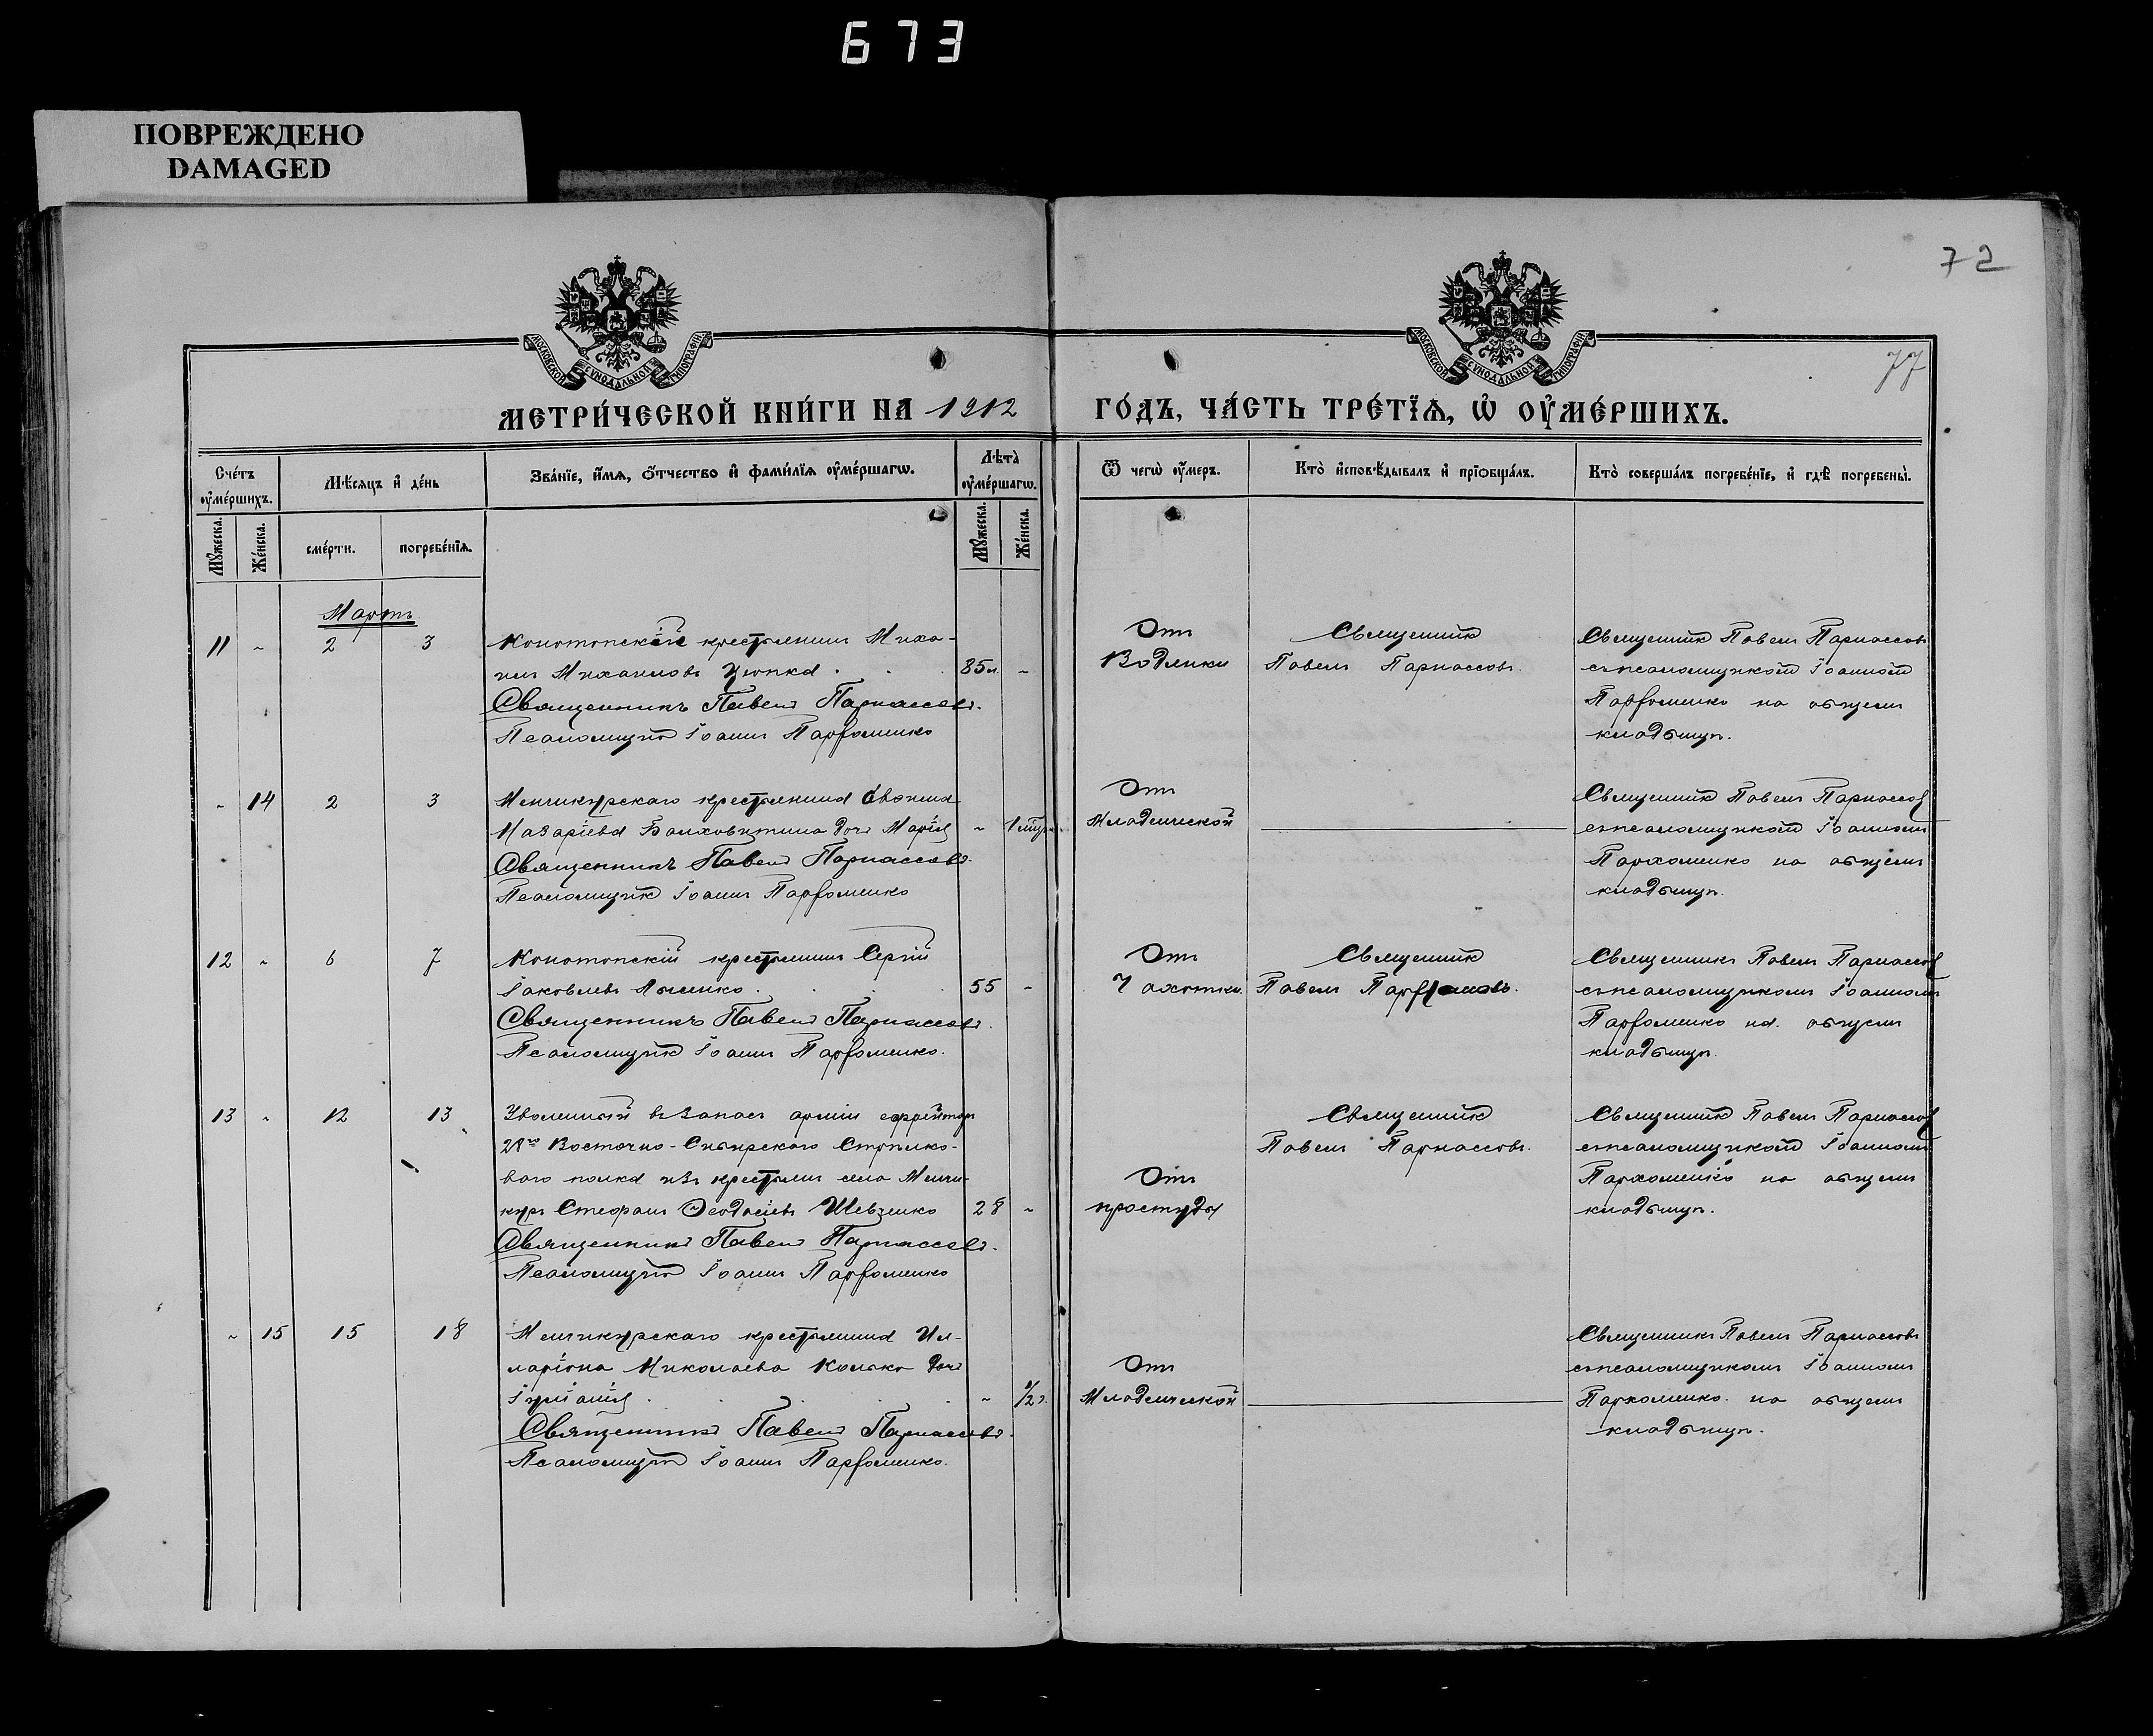 673
ПОВРЕЖДЕНО
DAMAGED
72
77
МОСКОВСКОЙ СѴНОДАЛЬНОЙ ТИПОГРАФІИ
МОСКОВСКОЙ СѴНОДАЛЬНОЙ ТИПОГРАФІИ
МЕТРИ́ЧЕСКОЙ КНИ́ГИ НА 1912 ГО́ДЪ, ЧА́СТЬ ТРЕ́ТЇѦ, Ѡ҆ ОУ҆МЕ́РШИХЪ.
Сче́тъ оу҆ме́ршихъ.
Мѣ́сяцъ и҆ де́нь
Зва́нїе, и҆́мѧ, ѻ҆́тчество и҆ фами́лїѧ оу҆ме́ршагѡ.
Лѣта̀ оу҆ме́ршагѡ.
Ѿ чегѡ̀ оу҆́меръ.
Кто̀ и҆сповѣ́дывалъ и҆ прїѻбща́лъ.
Кто̀ соверша́лъ погребе́нїе, и҆ гдѣ̀ погребены̀.
Мꙋ́жеска.
Же́нска.
сме́рти.
погребе́нїѧ.
Мꙋ́жеска.
Же́нска.
Мартъ
11 - 2 3 Конотопскій крестьянинъ Миха-
илъ Михаиловъ Цюпка . . 85 л. -
Священникъ Павелъ Парнассовъ.
Псаломщикъ Іоаннъ Парѳоменко
Отъ
Водянки
Священникъ
Павелъ Парнассовъ.
Священникъ Павелъ Парнассовъ
съ псаломщикомъ Іоанномъ
Парѳоменко на общемъ
кладбищѣ.
- 14 2 3 Менчикурскаго крестьянина
Назаріева дочь Марія -
Священникъ Павелъ Парнассовъ.
Псаломщикъ Іоаннъ Парѳоменко
Отъ
Младенческой
Священникъ Павелъ Парнассовъ
съ псаломщикомъ Іоанномъ
Пархоменко на общемъ
кладбищѣ.
12 - 6 7 Конотопскій крестьянинъ Сергій
Іаковлевъ Лысенко . . . 55 -
Священникъ Павелъ Парнассовъ.
Псаломщикъ Іоаннъ Парѳоменко.
Отъ
Чахотки.
Священникъ
Павелъ
Священникъ Павелъ Парнассовъ
съ псаломщикомъ Іоанномъ
Парѳоменко на общемъ
кладбищѣ.
13 - 12 13 Уволенный въ запасъ арміи ефрейторъ
28го Восточно-Сибирскаго Стрѣлко-
ваго полка изъ крестьянъ села Менчи-
куръ Стефанъ Ѳеодосіевъ Шевченко 28 -
Священникъ Павелъ Парнассовъ.
Псаломщикъ Іоаннъ Парѳоменко
Отъ
простуды
Священникъ
Павелъ Парнассовъ.
Священникъ Павелъ Парнассовъ
съ псаломщикомъ Іоанномъ
Пархоменко на общемъ
кладбищѣ.
- 15 15 18 Менчикурскаго крестьянина Ил-
ларіона Николаева дочь
Іуліанія . . . - 1/2 г.
Священникъ Павелъ Парнассовъ.
Псаломщикъ Іоаннъ Парѳоменко.
Отъ
Младенческой
Священникъ Павелъ Парнассовъ
съ псаломщикомъ Іоанномъ
Пархоменко на общемъ
кладбищѣ.